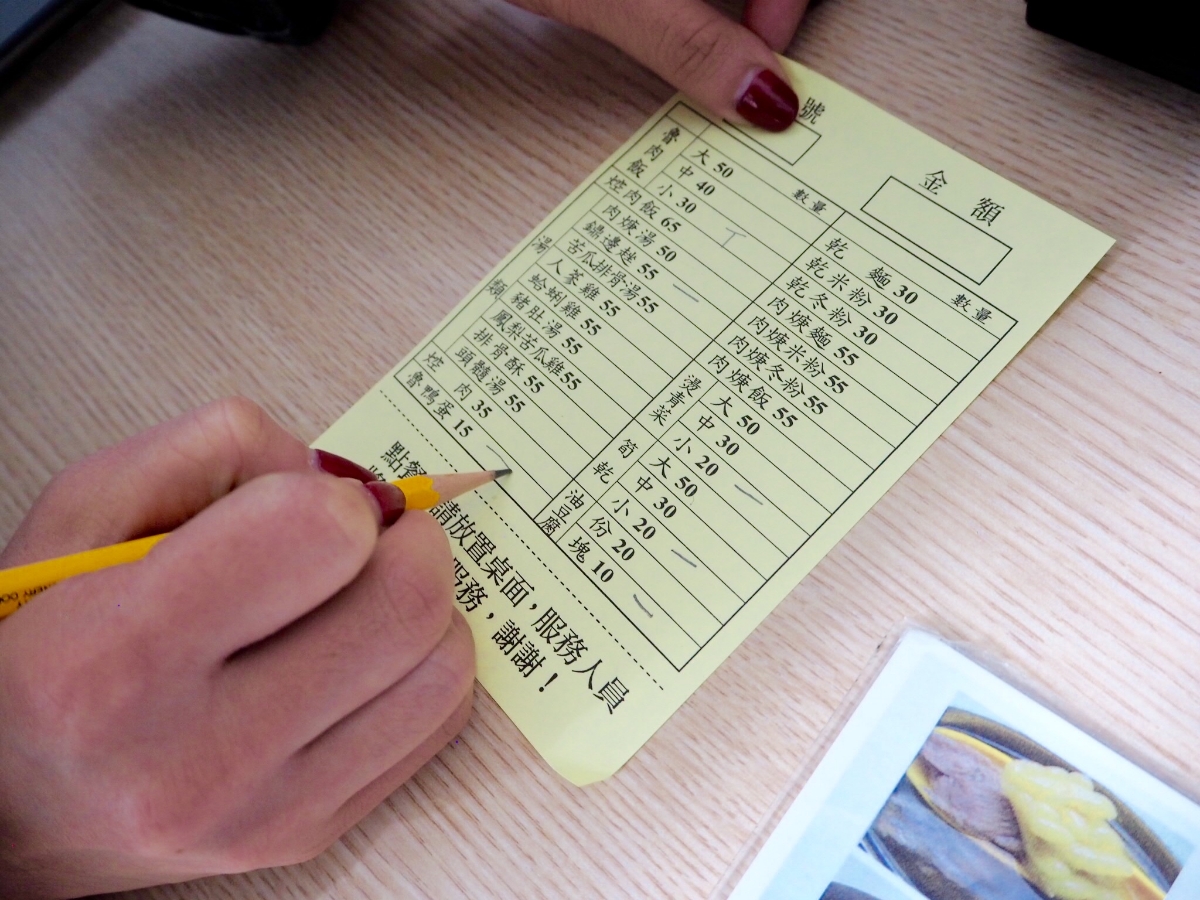 號
金額
數量
魯肉飯
大 50
中 40
小 30
焢肉飯 65
湯類
肉焿湯 50
鍋邊趖 55
苦瓜排骨湯55
人蔘雞 55
蛤蜊雞 55
豬肚湯 55
鳳梨苦瓜雞55
排骨酥 55
頭髓湯 55
焢肉 35
魯鴨蛋 15
數量
乾麵 30
乾米粉 30
乾冬粉 30
肉焿麵 55
肉焿米粉 55
肉焿冬粉 55
肉焿飯 55
燙青菜
大 50
中 30
小 20
筍乾
大 50
中 30
小 20
油豆腐
份 20
塊 10
點餐
請放置桌面，服務人員
服務，謝謝！